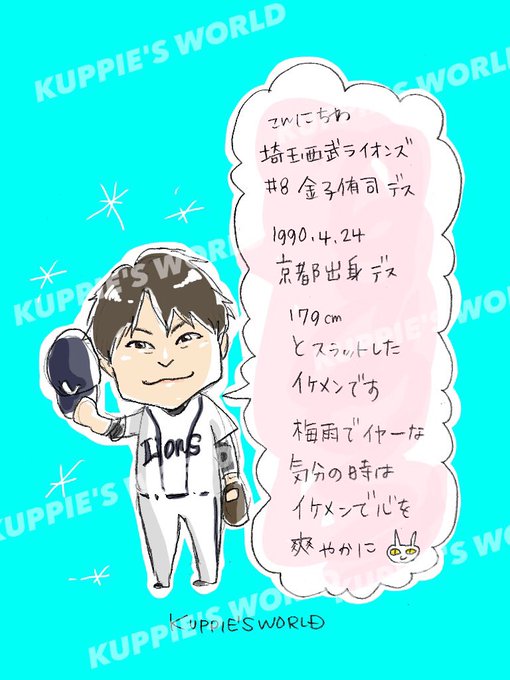 KUPPIE'S WORLD
KUPPIE'S WORLD
こんにちわ
埼玉西武ライオンズ
#8 金子侑司 デス
1990.4.24
京都出身 デス
179cm
とスラットした
イケメンです
梅雨でイヤーな
気分の時は
イケメンで心を
爽やかに
KUPPIE'S WORLD
KUPPIE'S WORLD
Lions
KUPPIE'S WORLD
KUPPIE'S WORLD
KUPPIE'S WORLD
KUPPIE'S WORLD